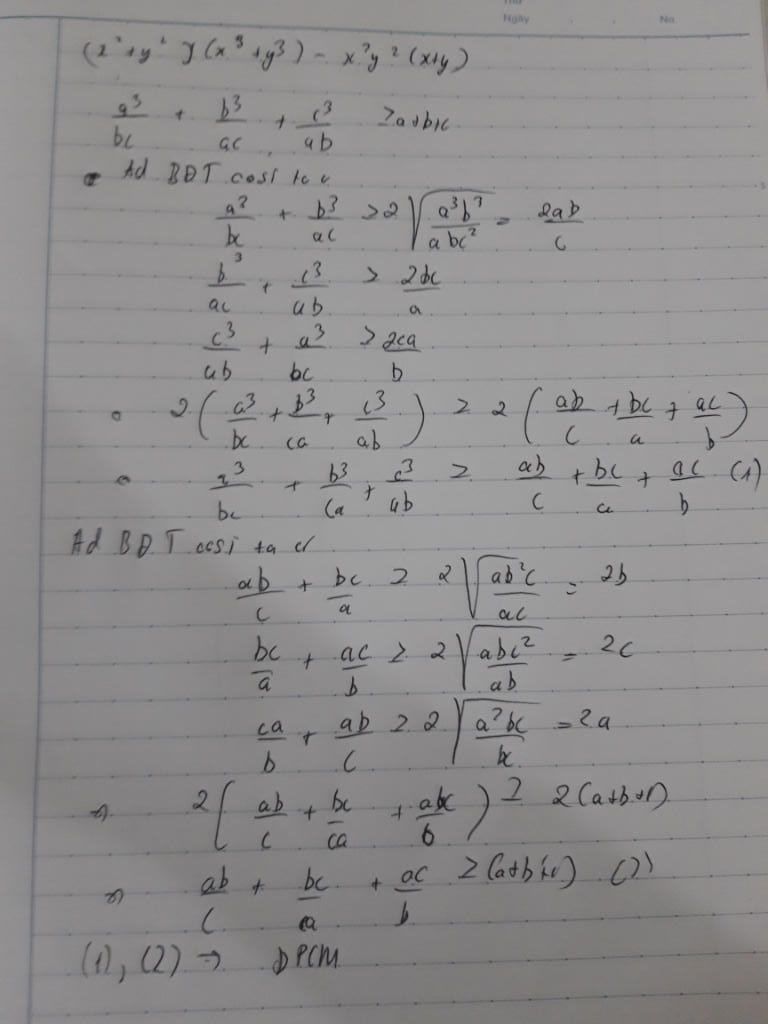 Thứ
Ngày No.
(x² + y²)(x³ + y³) - x²y²(x+y)
a³/bc + b³/ac + c³/ab ≥ a+b+c
Ad BĐT cosi ta c
a³/bc + b³/ac > 2√(a³b³/abc²) = 2ab/c
b³/ac + c³/ab > 2bc/a
c³/ab + a³/bc > 2ca/b
2(a³/bc + b³/ca + c³/ab) ≥ 2(ab/c + bc/a + ac/b)
a³/bc + b³/ca + c³/ab ≥ ab/c + bc/a + ac/b (1)
Ad BĐT cosi ta c
ab/c + bc/a ≥ 2√(ab²c/ac) = 2b
bc/a + ac/b ≥ 2√(abc²/ab) = 2c
ca/b + ab/c ≥ 2√(a²bc/bc) = 2a
=> 2(ab/c + bc/ca + abc/b) ≥ 2(a+b+c)
=> ab/c + bc/a + ac/b ≥ (a+b+c) (2)
(1), (2) → ĐPCM